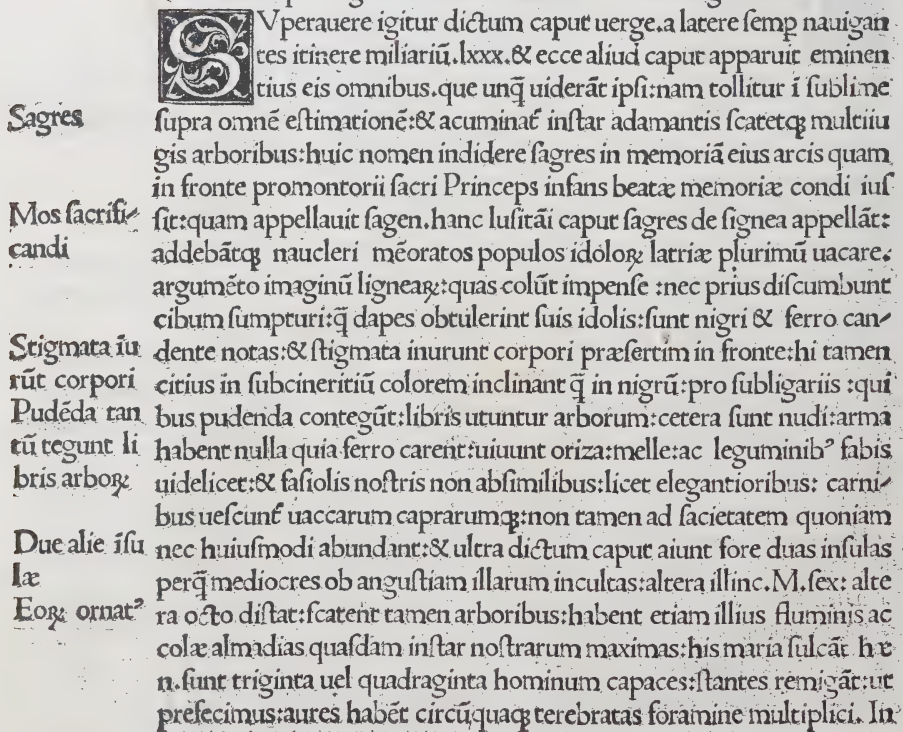 SVperauere igitur dictum caput uerge.a latere semꝑ nauigan
tes itinere miliariū.lxxx.& ecce aliud caput apparuit eminen
tius eis omnibus.que unq̄ uiderāt ipsi:nam tollitur ī sublime
Sagres
supra omnē estimationē:& acuminat᷑ instar adamantis scatetqꝫ multiiu
gis arboribus:huic nomen indidere sagres in memoriā eius arcis quam
in fronte promontorii sacri Princeps infans beatæ memoriæ condi ius
Mos sacrifi-
candi
sit:quam appellauit sagen.hanc lusitāi caput sagres de signea appellāt:
addebātqꝫ naucleri mēoratos populos idoloꝝ latriæ plurimū uacare.
argumēto imaginū ligneaꝝ:quas colūt impense :nec prius discumbunt
cibum sumpturi:q̄ dapes obtulerint suis idolis:sunt nigri & ferro can-
Stigmata īu
rūt corpori
Pudēda tan
tū tegunt li
bris arboꝝ
dente notas:& stigmata inurunt corpori præsertim in fronte:hi tamen
citius in subcineritiū colorem inclinant q̄ in nigrū:pro subligariis :qui
bus pudenda contegūt:libris utuntur arborum:cetera sunt nudi:arma
habent nulla quia ferro carent:uiuunt oriza:melle:ac leguminibꝰ fabis
uidelicet:& fasiolis nostris non absimilibus:licet elegantioribus: carni-
bus uescunt᷑ uaccarum caprarumqꝫ:non tamen ad sacietatem quoniam
Due alie īsu
læ
Eoꝝ ornatꝰ
nec huiusmodi abundant:& ultra dictum caput aiunt fore duas insulas
perq̄ mediocres ob angustiam illarum incultas:altera illinc.M.sex: alte
ra octo distat:scatent tamen arboribus:habent etiam illius fluminis ac
colæ almadias quasdam instar nostrarum maximas:his maria sulcāt hæ
n.sunt triginta uel quadraginta hominum capaces:stantes remigāt:ut
prefecimus:aures habēt circūquaqꝫ terebratas foramine multiplici. In